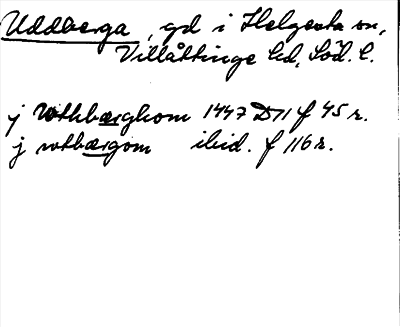 Uddberga, gd i Helgesta sn,
Villåttinge hd, Söd. l.
j Wthbærghom 1447 D11 f 45 r.
j vtbærgom ibid. f 116 r.